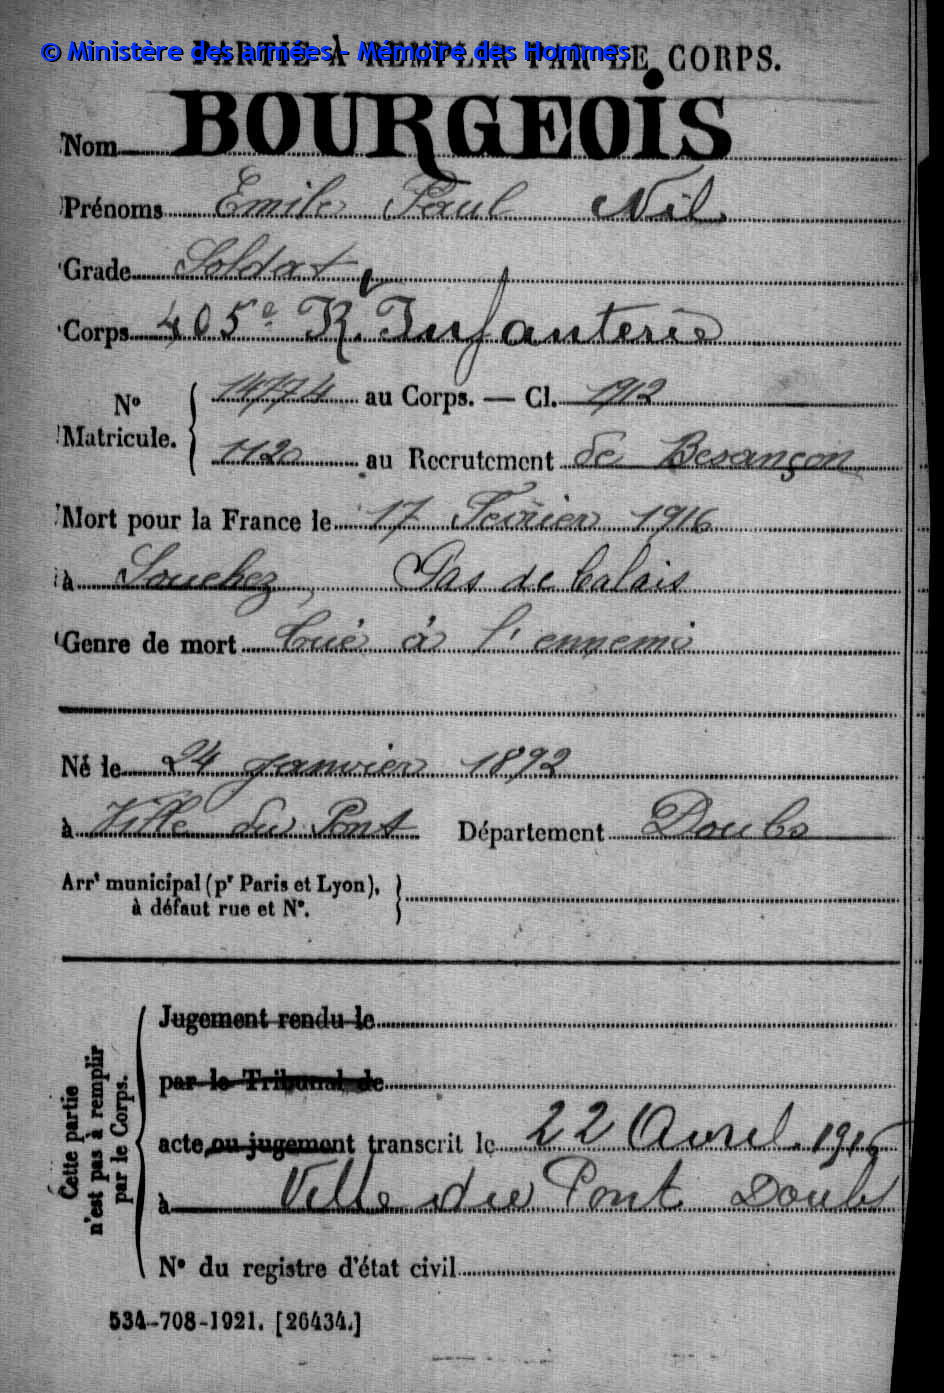 © Ministère des armées - Mémoire des Hommes
PARTIE À REMPLIR PAR LE CORPS.
Nom BOURGEOIS
Prénoms Emile Paul Nil
Grade Soldat
Corps 405e R. Infanterie
N° Matricule. 14774 au Corps. — Cl. 1912
1120 au Recrutement de Besançon
Mort pour la France le 17 Février 1916
à Souchez, Pas de Calais
Genre de mort Tué à l'ennemi
Né le 24 janvier 1892
à Ville du Pont Département Doubs
Arrt municipal (pr Paris et Lyon),
à défaut rue et N°.
Cette partie
n'est pas à remplir
par le Corps.
Jugement rendu le
par le Tribunal de
acte ou jugement transcrit le 22 Avril 1916
à Ville du Pont Doubs
N° du registre d'état civil
534-708-1921. [26434.]